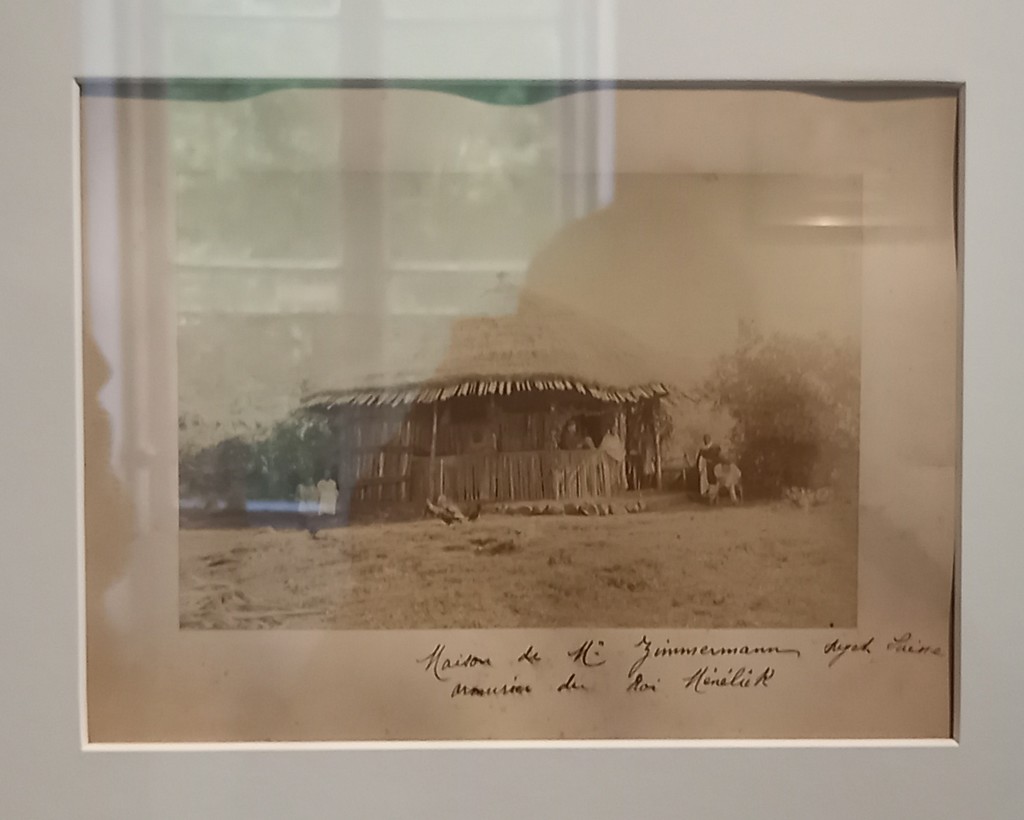 Maison de Mr Zimmermann, sujet Suisse
armurier du Roi Ménélick